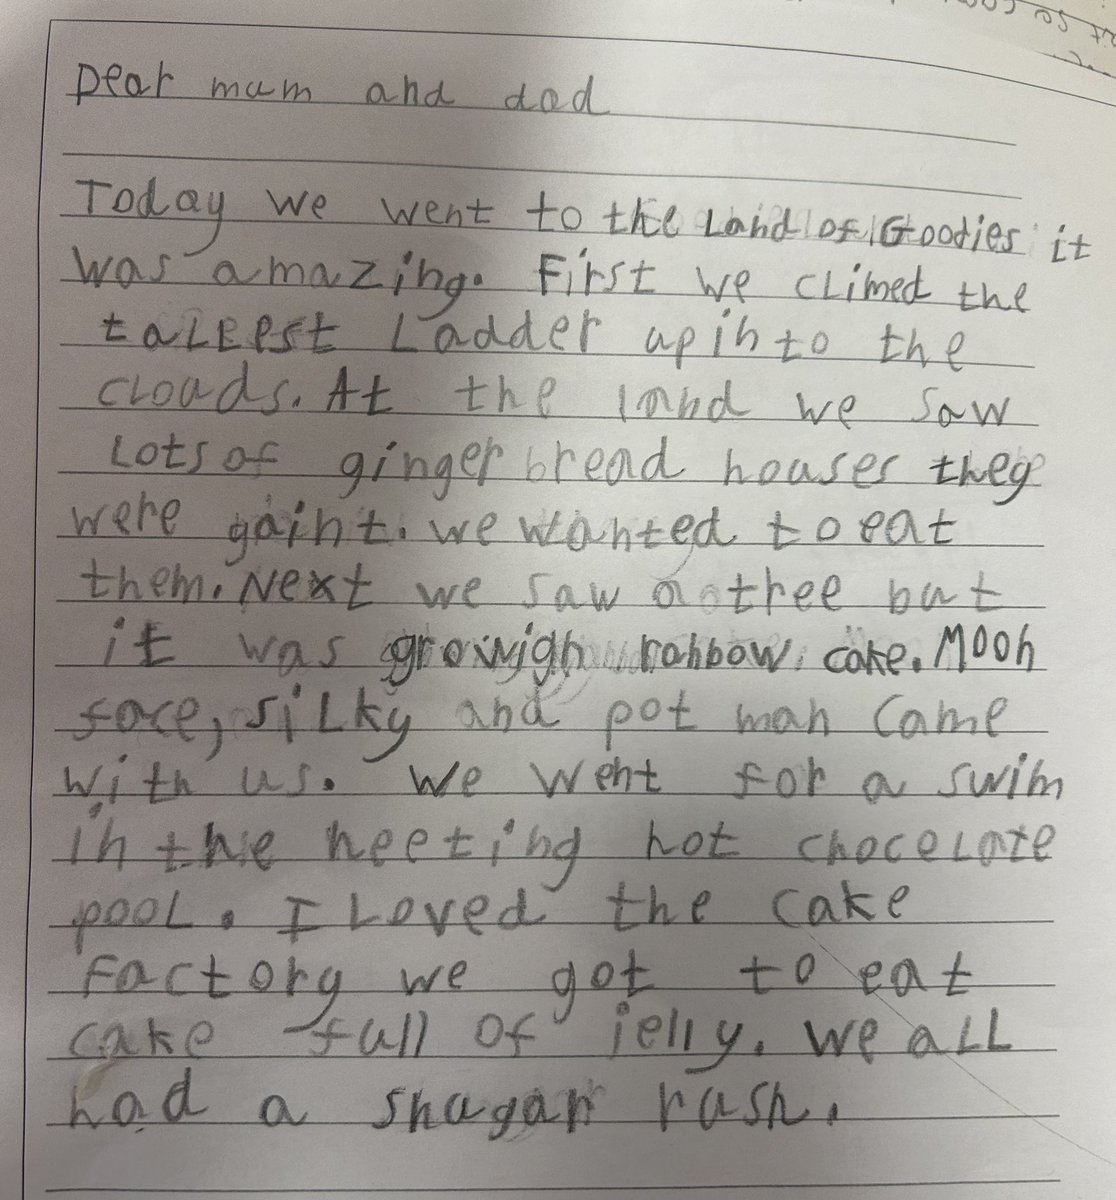 Dear mum and dad
Today we went to the Land of Goodies it
was amazing. First we climed the
talleest Ladder up into the
clouds. At the land we saw
Lots of ginger bread houses they
were gaint. we wanted to eat
them. Next we saw a tree but
it was growign rahbow cake. Moon
face, silky and pot man came
with us. We went for a swim
in the heeting hot chocelate
pool. I Loved the cake
Factory we got to eat
cake full of jelly. We all
had a shugar rush.